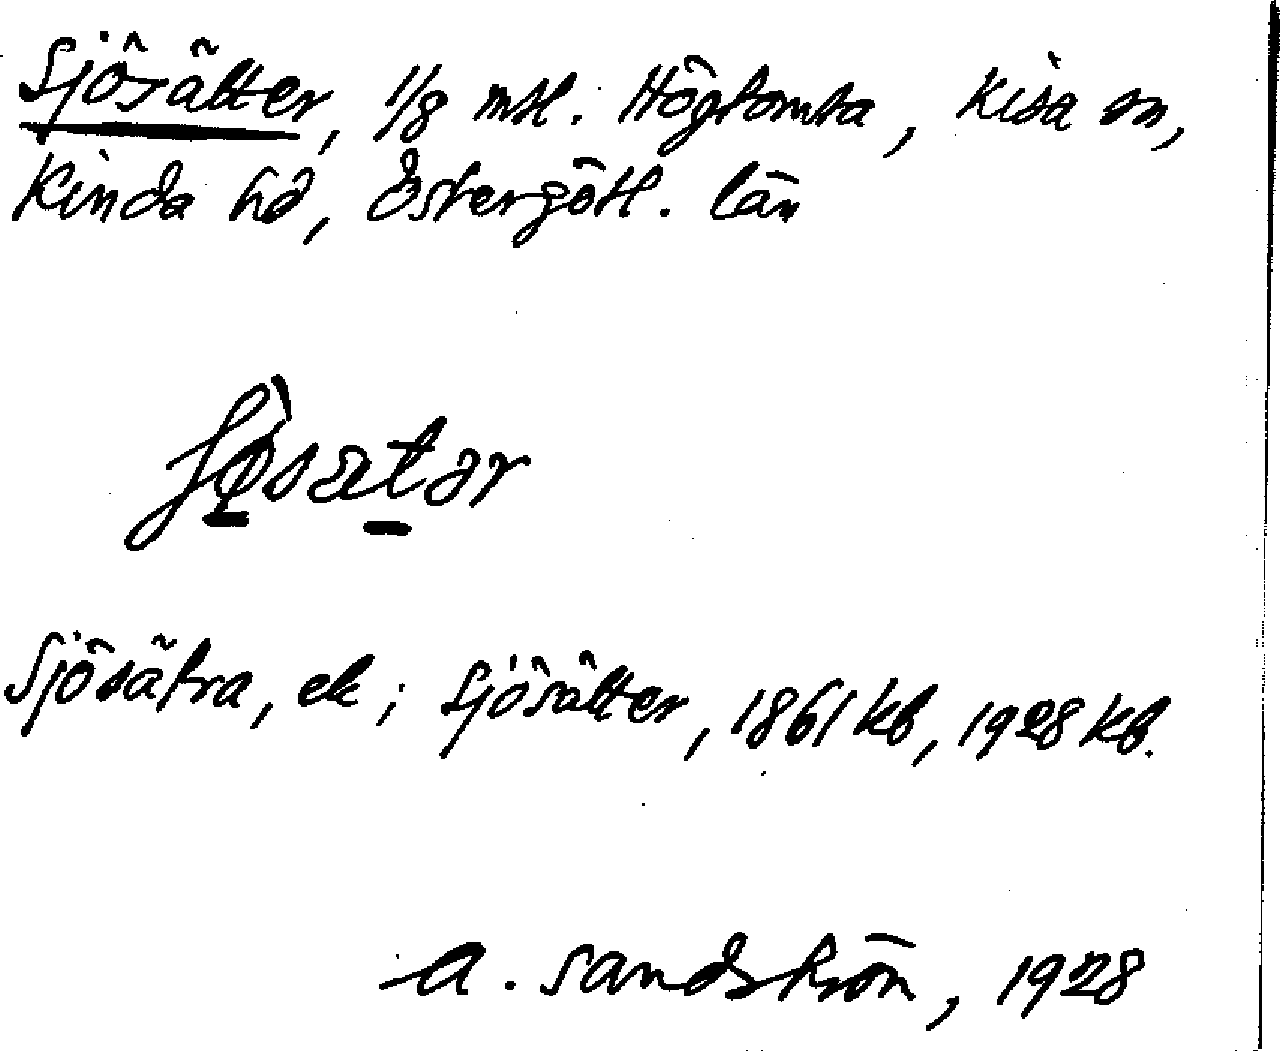 Sjösätter, 1/8 mtl. Högtomta, Kisa sn,
Kinda hd, Östergötl. län
ʃø̀sætər
Sjösätra, ek; Sjösätter, 1861 kb, 1928 kb.
A. Sandström, 1928